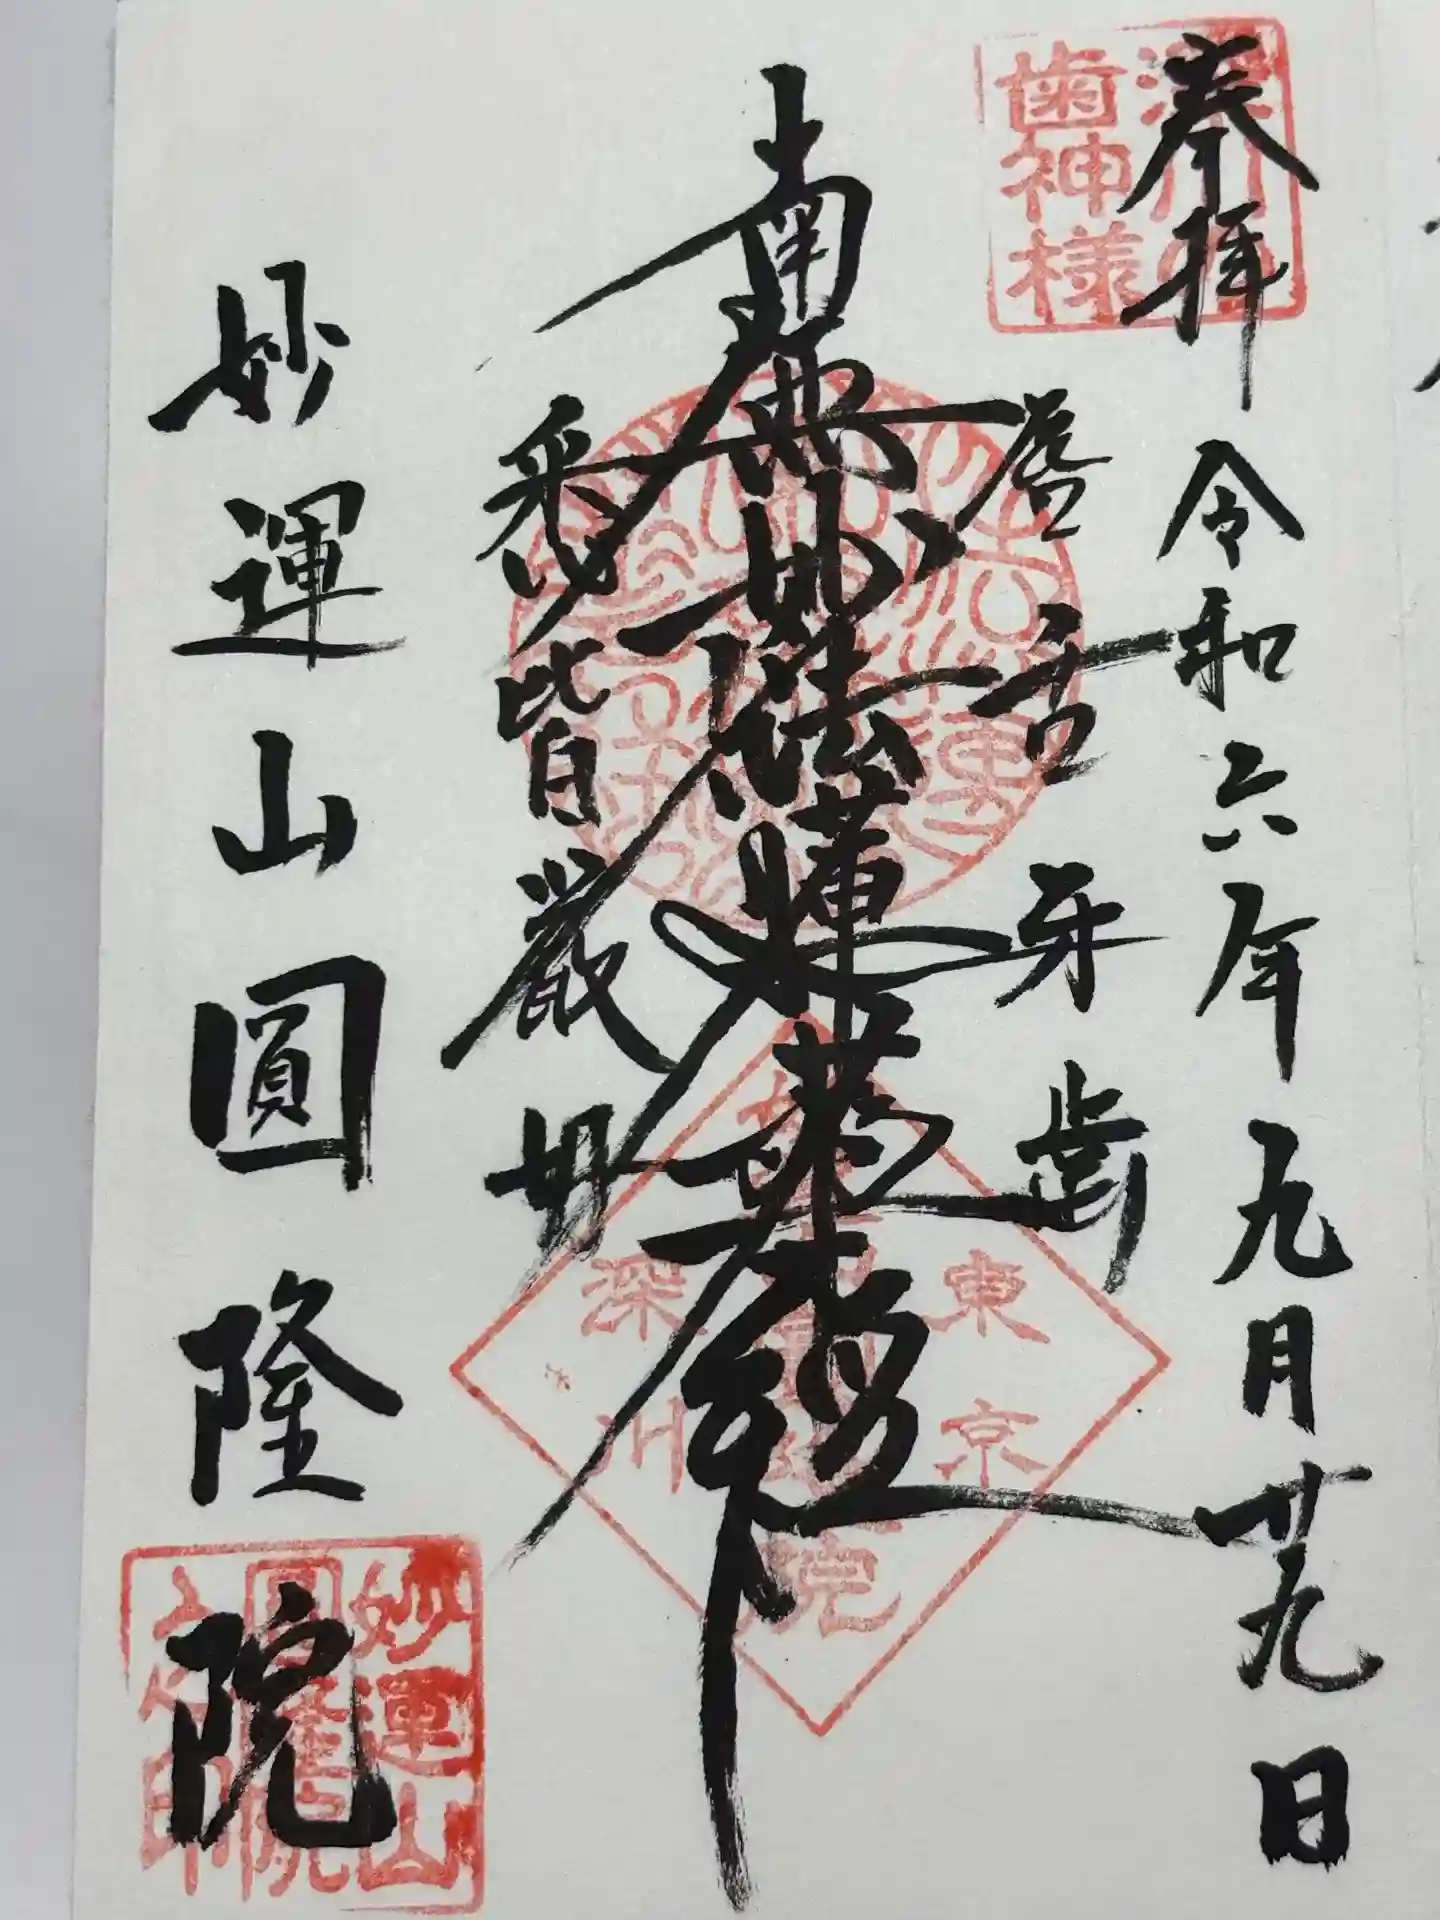 深川の
歯神様
奉拝 令和六年九月廿九日
唇舌牙歯
南無妙法蓮華経
悉皆厳好
東京
深川
妙運山圓隆院
妙運山
圓隆院
之印